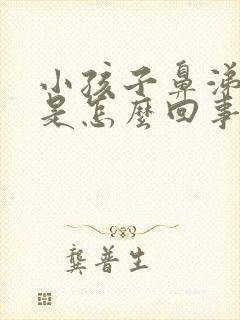 小孩子鼻涕
是怎麼回事
龔普生